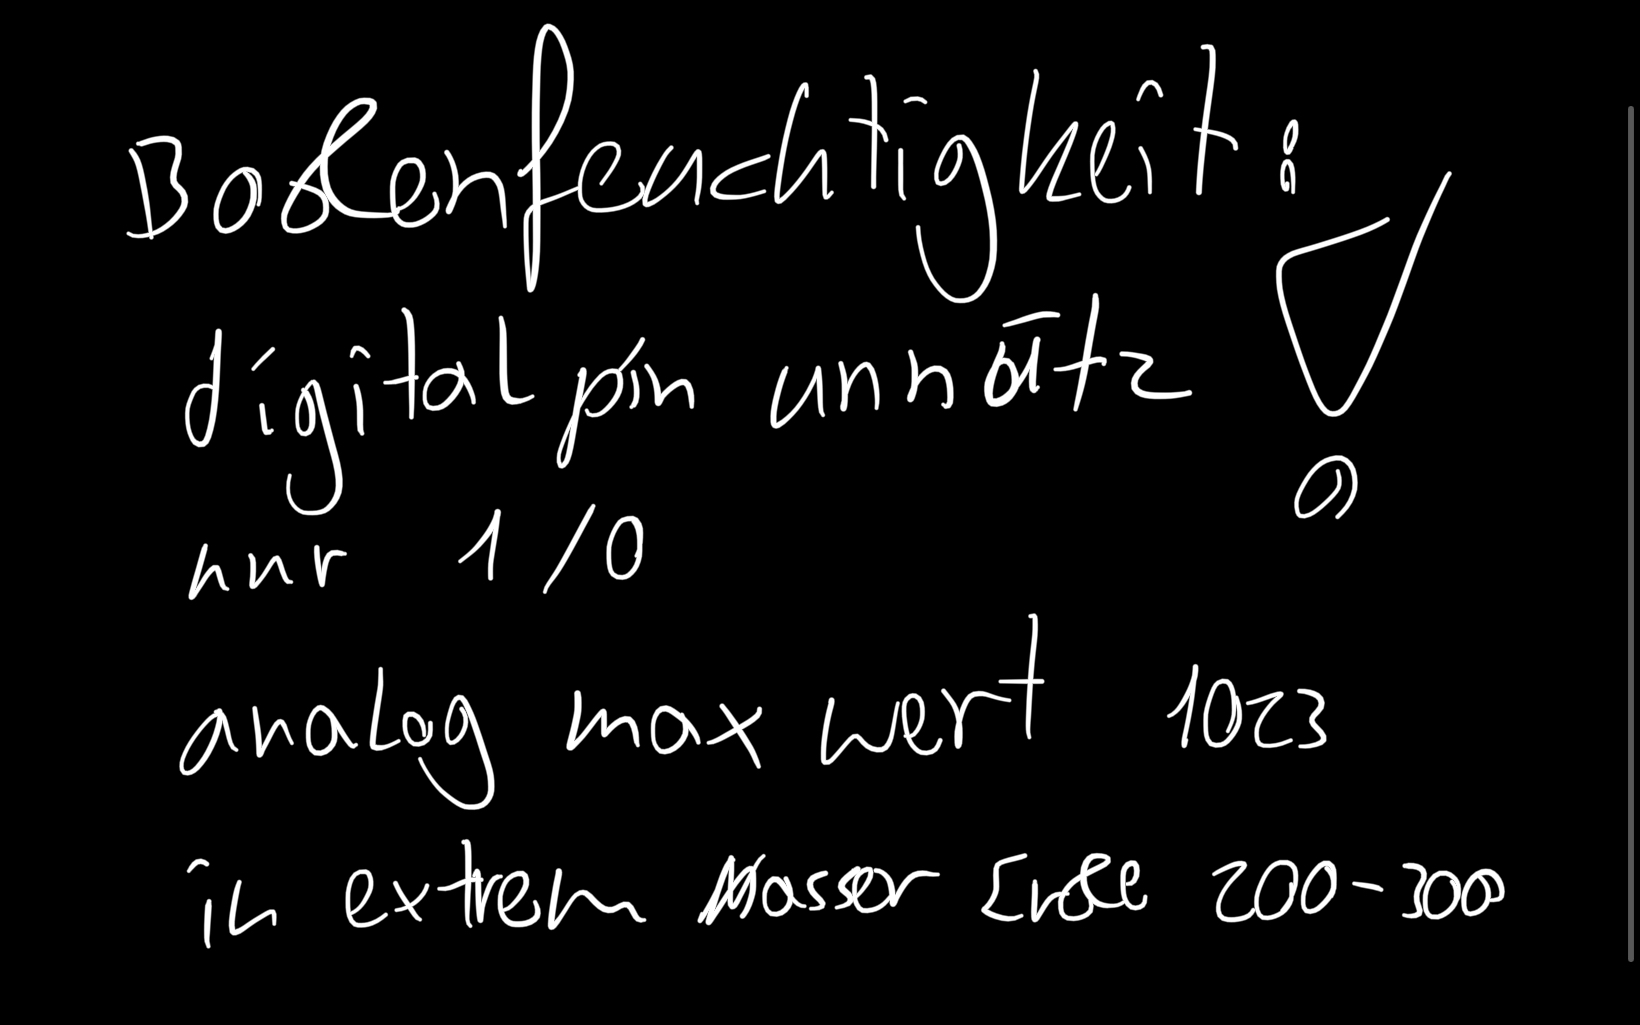 Bodenfeuchtigkeit:
digital pin unnütz !
nur 1/0
analog max wert 1023
in extrem nasser Erde 200-300